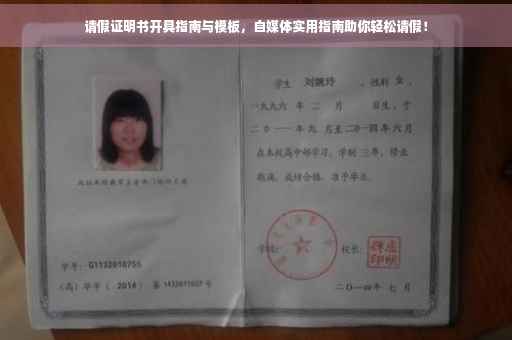 请假证明书开具指南与模板，自媒体实用指南助你轻松请假！
学生 刘婉玲 ，性别 女 ，
一九九六 年 二 月 日生，于
二〇一一年九 月至二〇一四年 六 月
在本校高中部学习，学制 三年，修业
期满，成绩合格，准予毕业。
学号：G1132010755
（高）毕字（ 2014 ）第 1432011027 号
学校：
校长：
二〇一四年 七 月